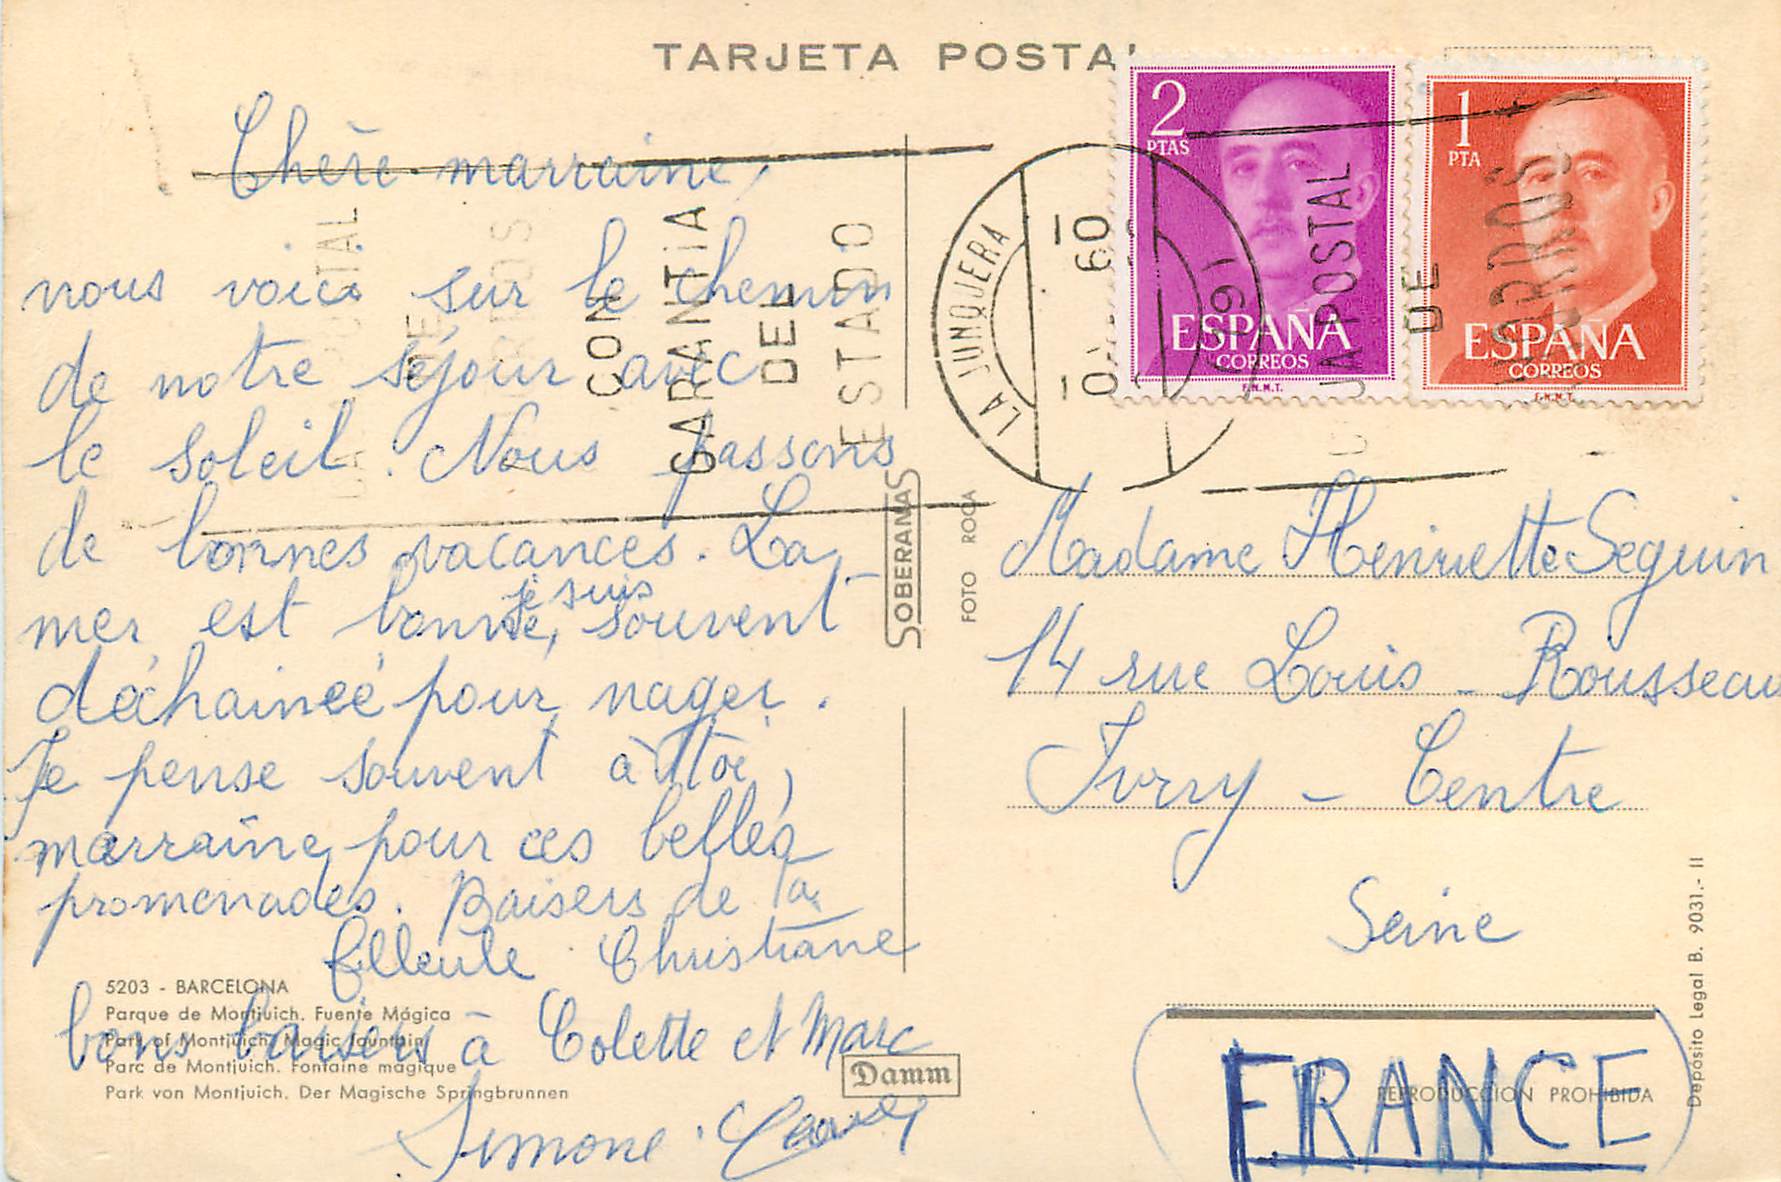 TARJETA POSTAL
2
PTAS
ESPAÑA
CORREOS
F.N.M.T.
1
PTA
ESPAÑA
CORREOS
F.N.M.T.
LA JUNQUERA
CAJA POSTAL
DE
AHORROS
CON
GARANTIA
DEL
ESTADO
Chère marraine,
nous voici sur le chemin
de notre séjour avec
le soleil. Nous passons
de bonnes vacances. La
mer est bonne, je suis souvent
déchainée pour nager.
Je pense souvent à toi,
marraine, pour ces belles
promenades. Baisers de ta
filleule Christiane
bons baisers à Colette et Marc
Simone
SOBERANAS
FOTO ROCA
Madame Henriette Seguin
14 rue Louis - Rousseau
Ivry - Centre
Seine
FRANCE
5203 - BARCELONA
Parque de Montjuich. Fuente Mágica
Park of Montjuich. Magic fountain
Parc de Montjuich. Fontaine magique
Park von Montjuich. Der Magische Springbrunnen
Damm
REPRODUCCION PROHIBIDA
Depósito Legal B. 9031.- II